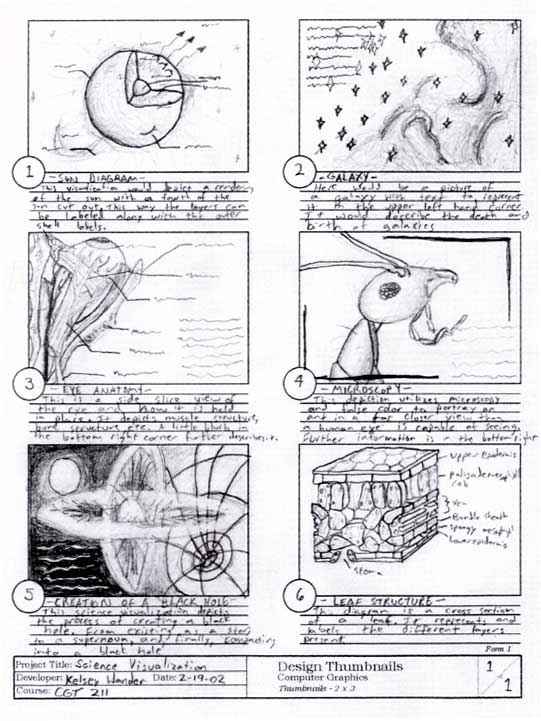 1
- SUN DIAGRAM -
This visualization would depict a rendering
of the sun with a fourth of the
sun cut out. This way the layers can
be labeled along with the outer
shell labels.
2
- GALAXY -
Here would be a picture of
a galaxy with text to represent
it in the upper left hand corner.
It would describe the death and
birth of galaxies
3
- EYE ANATOMY -
This is a side slice view of
the eye and how it is held
in place. It depicts muscle structure,
bone structure, etc. A little blurb in
the bottom right corner further describes it.
4
- MICROSCOPY -
This depiction utilizes microscopy
and false color to portray an
ant in a far closer view than
a human eye is capable of seeing.
Further information is in the bottom right
upper epidermis
palisade mesophyll
cell
Vein
Bundle sheath
spongy mesophyll
Lower epidermis
stoma
5
- CREATION OF A BLACK HOLE -
This science visualization depicts
the process of creating a black
hole. From existing as a star,
to a supernova, and finally, compacting
into a black hole
6
- LEAF STRUCTURE -
This diagram is a cross section
of a leaf. It represents and
labels the different layers
present.
Form 1
Project Title: Science Visualization
Developer: Kelsey Date: 2-19-02
Course: CGT 211
Design Thumbnails
Computer Graphics
Thumbnails - 2 x 3
1 of 1